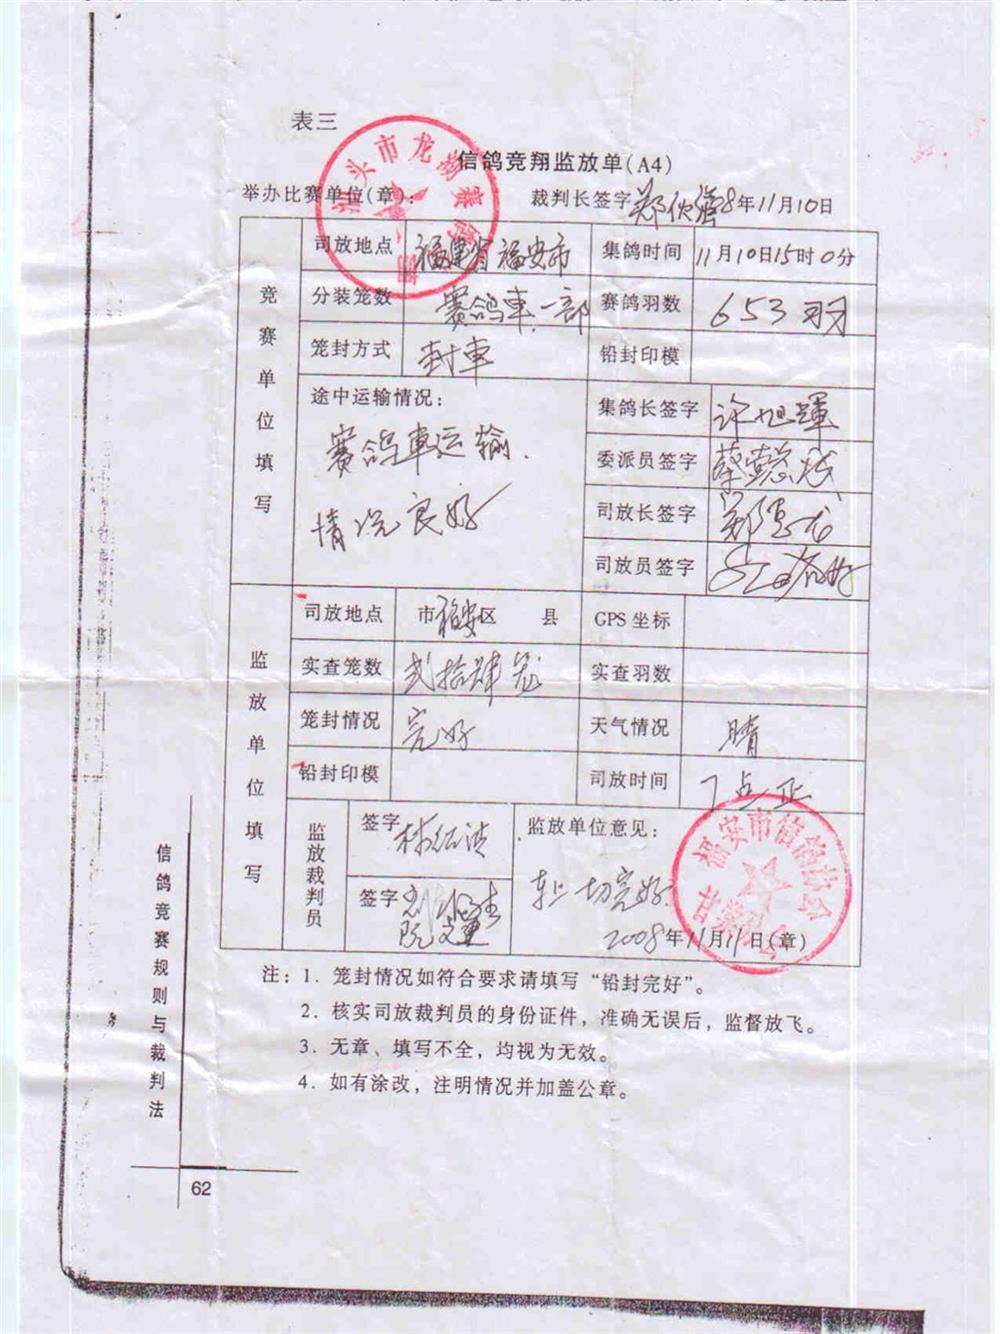 表三
信鸽竞翔监放单(A4)
举办比赛单位(章): 裁判长签字 8年11月10日
汕头市龙湖赛鸽
竞赛单位填写
司放地点 福建省福安市 集鸽时间 11月10日15时0分
分装笼数 赛鸽車一部 赛鸽羽数 653羽
笼封方式 封車 铅封印模
途中运输情况: 集鸽长签字 许旭輝
赛鸽車运输. 委派员签字
情况良好 司放长签字
司放员签字
监放单位填写
司放地点 市福安区 县 GPS坐标
实查笼数 弍拾肆笼 实查羽数
笼封情况 完好 天气情况 晴
铅封印模 司放时间 7点正
监放裁判员 签字 监放单位意见:
签字 一切完好.
2008年11月11日(章)
福安市信鸽协会
注: 1. 笼封情况如符合要求请填写“铅封完好”。
2. 核实司放裁判员的身份证件，准确无误后，监督放飞。
3. 无章、填写不全，均视为无效。
4. 如有涂改，注明情况并加盖公章。
信鸽竞赛规则与裁判法
62